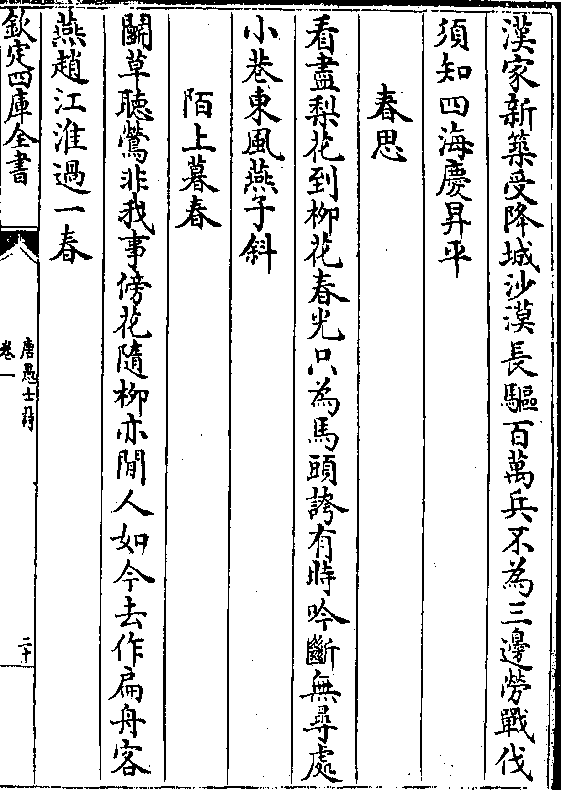 漢家新築受降城沙漠長驅百萬兵不為三邊勞戰伐
須知四海慶昇平
春思
看盡梨花到柳花春光只為馬頭誇有時吟斷無尋處
小巷東風燕子斜
陌上暮春
鬭草聽鶯非我事傍花隨柳亦閒人如今去作扁舟客
燕趙江淮過一春
欽定四庫全書
唐愚士詩
卷一
二十